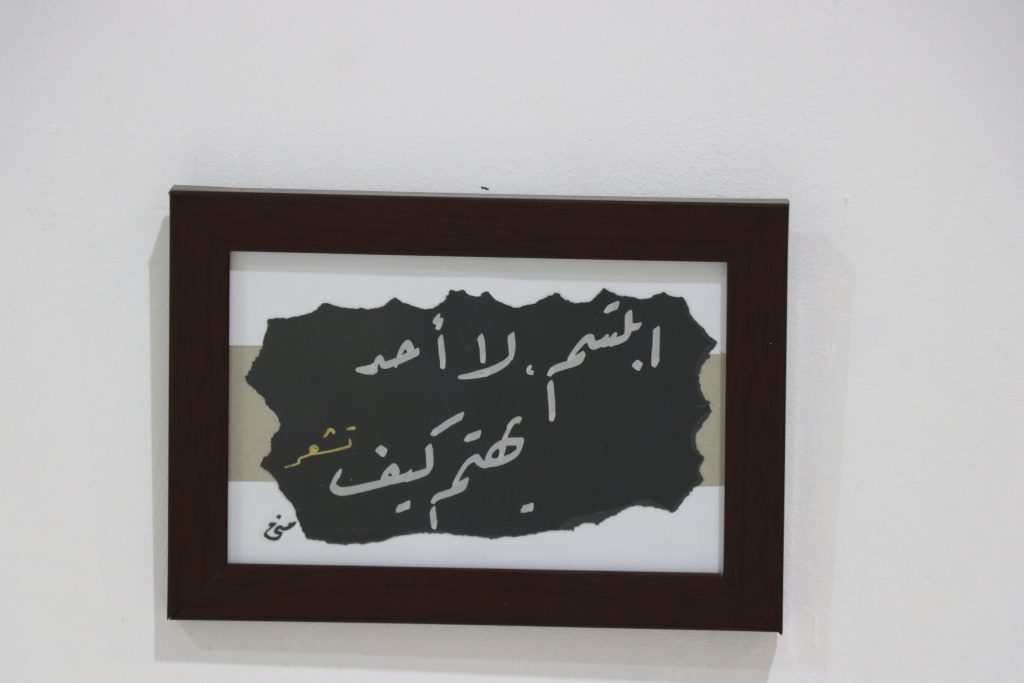 ابتسم، لا أحد
يهتم كيف تشعر
منى